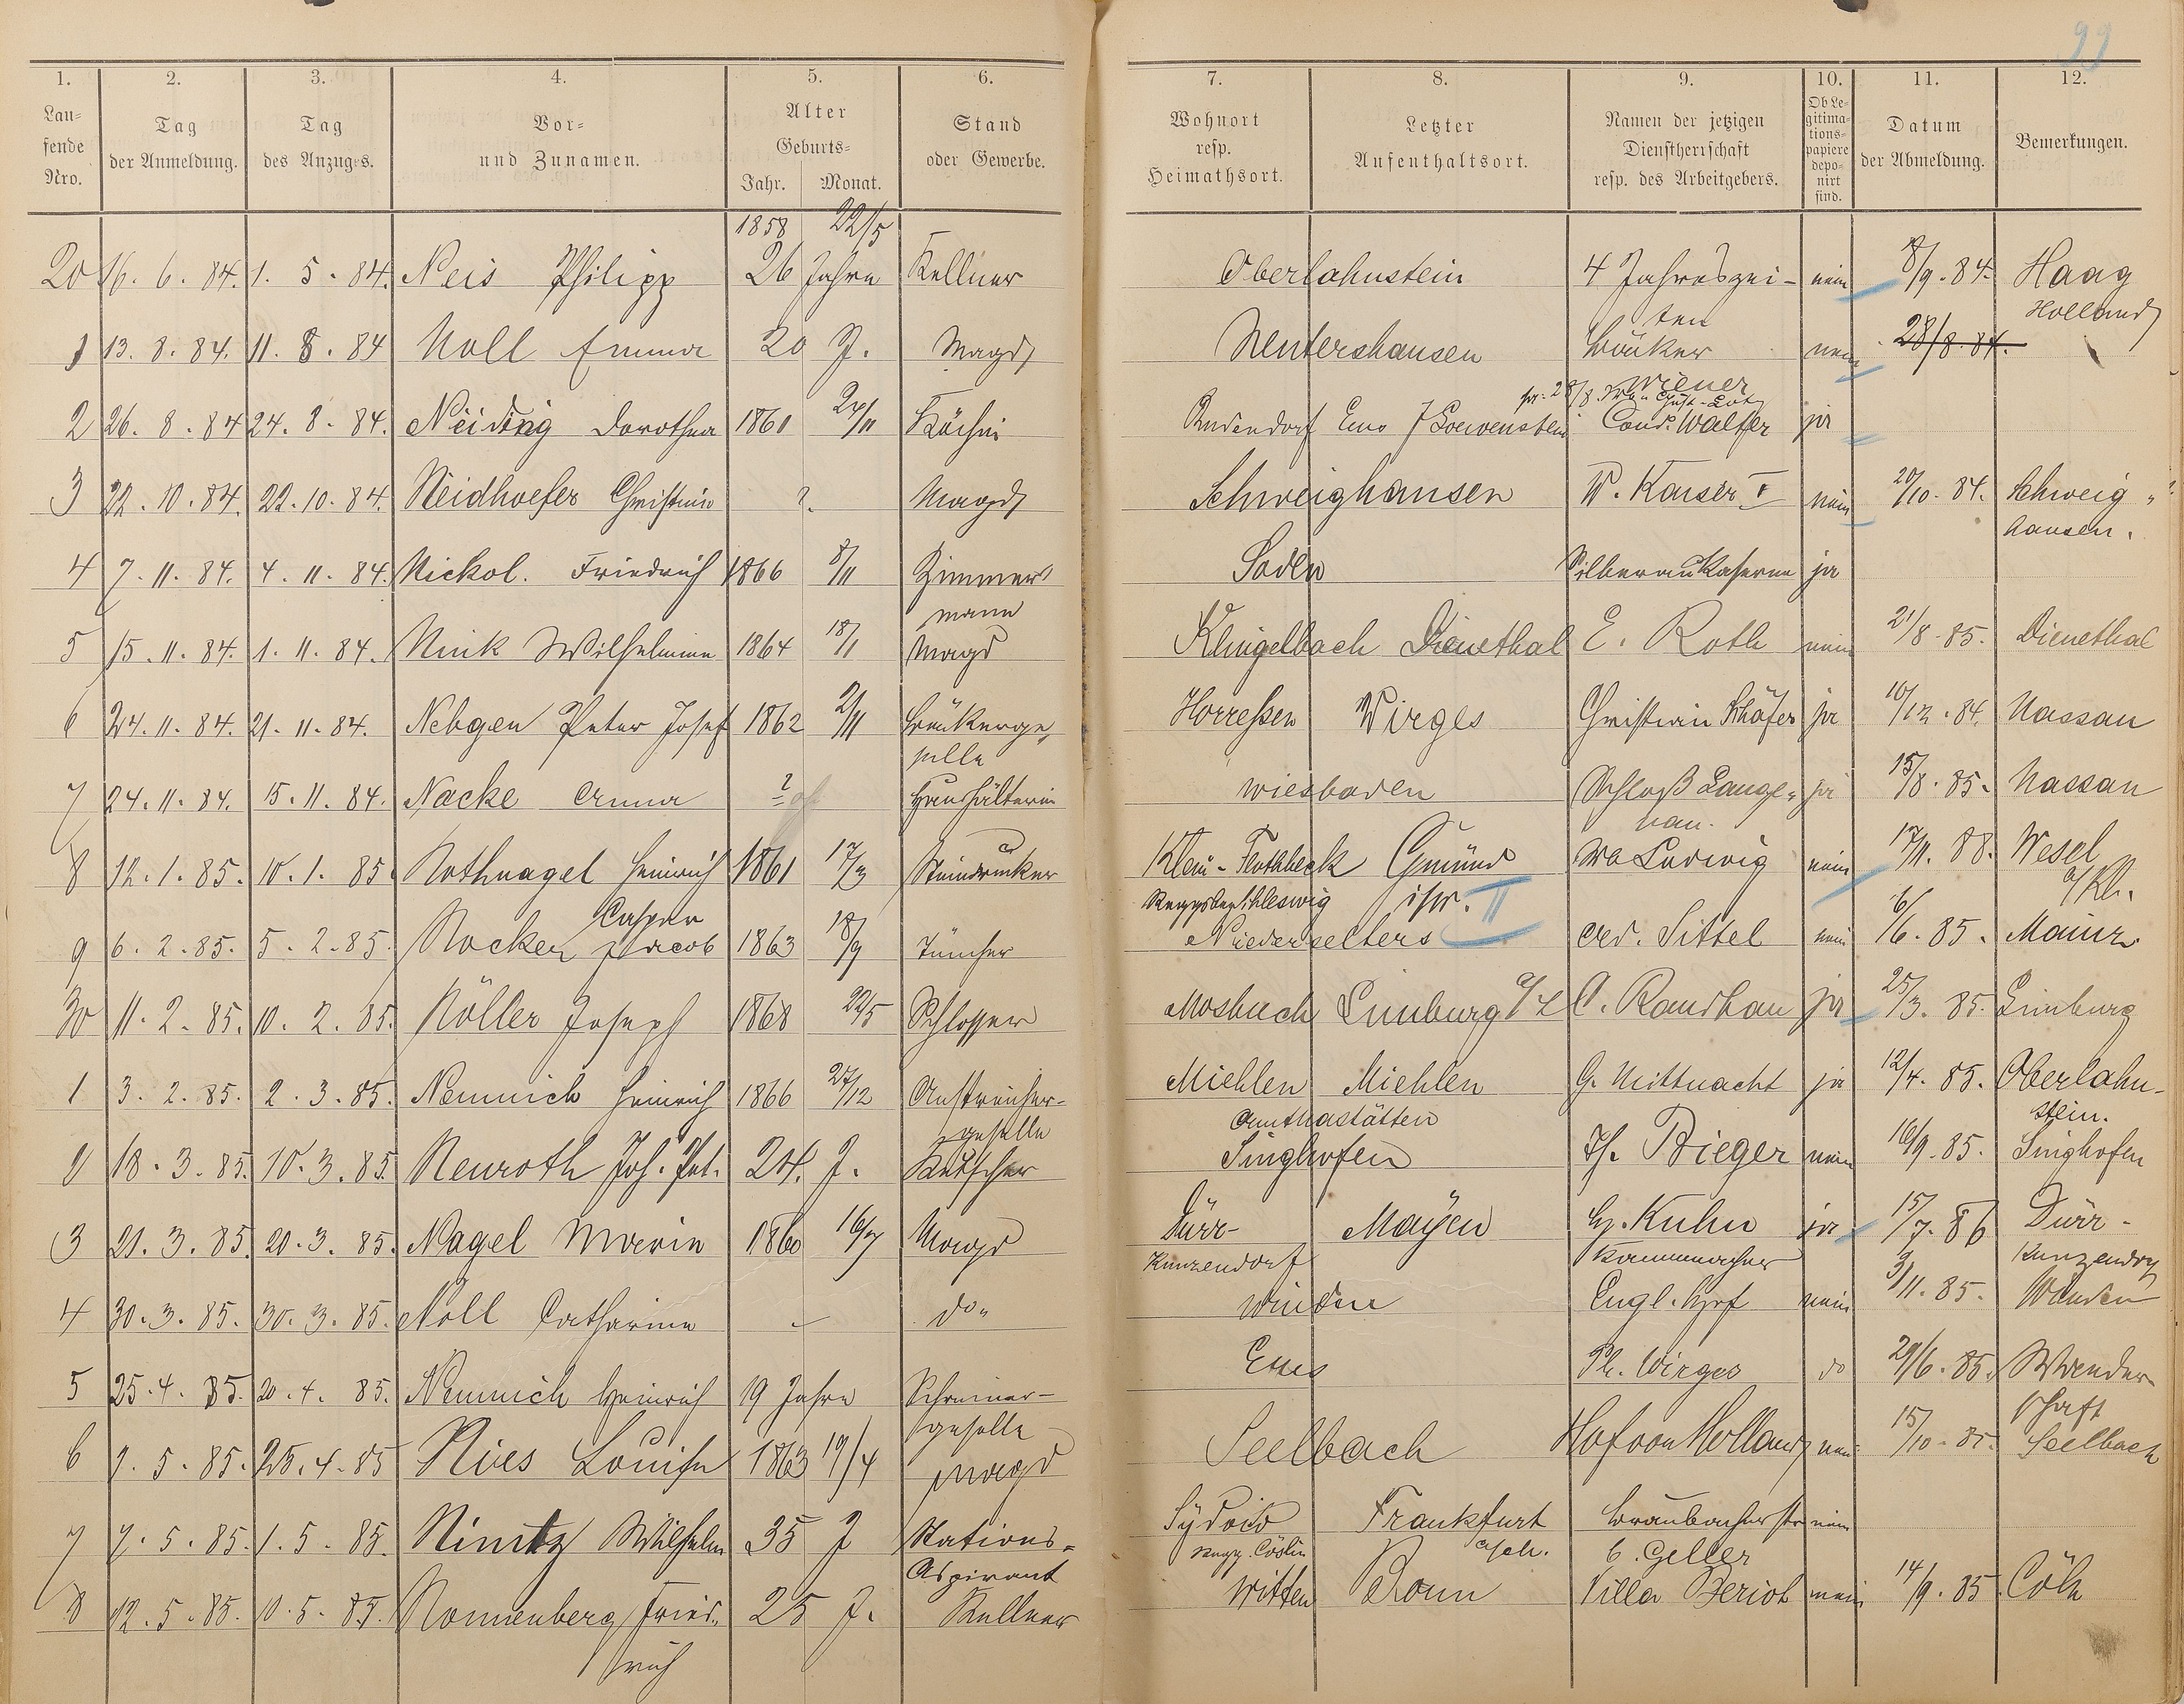 99
1. 2. 3. 4. 5. 6. 7. 8. 9. 10. 11. 12.
Lau-
fende
Nro.
Tag
der Anmeldung.
Tag
des Anzuges.
Vor-
und Zunamen.
Alter
Geburts-
Jahr. Monat.
Stand
oder Gewerbe.
Wohnort
resp.
Heimathsort.
Letzter
Aufenthaltsort.
Namen der jetzigen
Dienstherrschaft
resp. des Arbeitgebers.
Ob Le-
gitima-
tions-
papiere
depo-
nirt
sind.
Datum
der Abmeldung.
Bemerkungen.
1858 22/5
20 16. 6. 84. 1. 5. 84. Neis Philipp 26 Jahre Kellner Oberlahnstein 4 Jahreszei- nein 8/9. 84. Haag
ten Holland
1 13. 8. 84. 11. 8. 84 Noll Emma 20 J. Magd Nentershausen Bäcker nein 28/8. 84.
Wiener
2 26. 8. 84 24. 8. 84. Neidnig Dorothea 1860 24/11 Köchin Ems J Loewenstein Cond. Walther ja
3 22. 10. 84. 22. 10. 84. Neidhoefer Christine ? Magd Schweighausen W. Kaiser I nein 20/10. 84. Schweig-
hausen.
4 7. 11. 84. 4. 11. 84. Nickol. Friedrich 1866 8/11 Zimmer- Soden Silberau Kaserne ja
mann
5 15. 11. 84. 1. 11. 84. Nink Wilhelmine 1864 18/1 Magd Klingelbach Dienethal E. Roth nein 21/8. 85. Dienethal
6 24. 11. 84. 21. 11. 84. Nebgen Peter Josef 1862 2/11 Bäckerge- Horressen Wirges Christian Schäfer ja 10/12. 84. Nassau
selle
7 24. 11. 84. 15. 11. 84. Nacke Anna ? Haushälterin Wiesbaden Schloß Lange- ja 15/8. 85. Nassau
nau.
8 12. 1. 85. 10. 1. 85. Nothnagel Heinrich 1861 17/3 Steindrucker Klein-Flothbeck Gmünd Ludwig nein 17/11. 88. Wesel
Schleswig II a/Rh.
Caspar
9 6. 2. 85. 5. 2. 85. Nocker Jacob 1863 18/9 Tüncher Niederselters Ad. Sittel nein 6/6. 85. Mainz
30 11. 2. 85. 10. 2. 85. Nöller Joseph 1868 22/5 Schlosser Mosbach Limburg a/L C. Raushau ja 25/3. 85. Limburg
1 3. 2. 85. 2. 3. 85. Nemnich Heinrich 1866 27/12 Anstreicher- Miehlen Miehlen G. Mittnacht ja 12/4. 85. Oberlahn-
geselle stein.
2 18. 3. 85. 10. 3. 85. Neuroth Joh. Pet. 24. J. Kutscher Singhofen Th. Rieger nein 16/9. 85. Singhofen
3 21. 3. 85. 20. 3. 85. Nagel Maria 1860 16/7 Magd Dürr- Mayen H. Kuhn ja 15/7. 86 Dürr-
Kunzendorf Kammmacher Kunzendorf
4 30. 3. 85. 30. 3. 85. Noll Catharine – do. Winden Engl. Hof nein 3/11. 85. Winden
5 25. 4. 85. 20. 4. 85. Nemnich Heinrich 19 Jahre Schreiner- Ems Ph. Wirges do 29/6. 85. Wander-
geselle schaft
6 7. 5. 85. 25. 4. 85 Nies Louise 1863 19/4 Magd Seelbach Hof von Holland nein 15/10. 85. Seelbach
7 7. 5. 85. 1. 5. 85. Nimtz Wilhelm 35 J Stations- Sydow Frankfurt Braubacherstr nein
Aspirant Regz. Cöslin b. Geller
8 12. 5. 85. 10. 5. 85. Nonnenberg Fried- 25 J. Kellner Witten Bonn Villa Beriot nein 14/9. 85. Cöln
rich